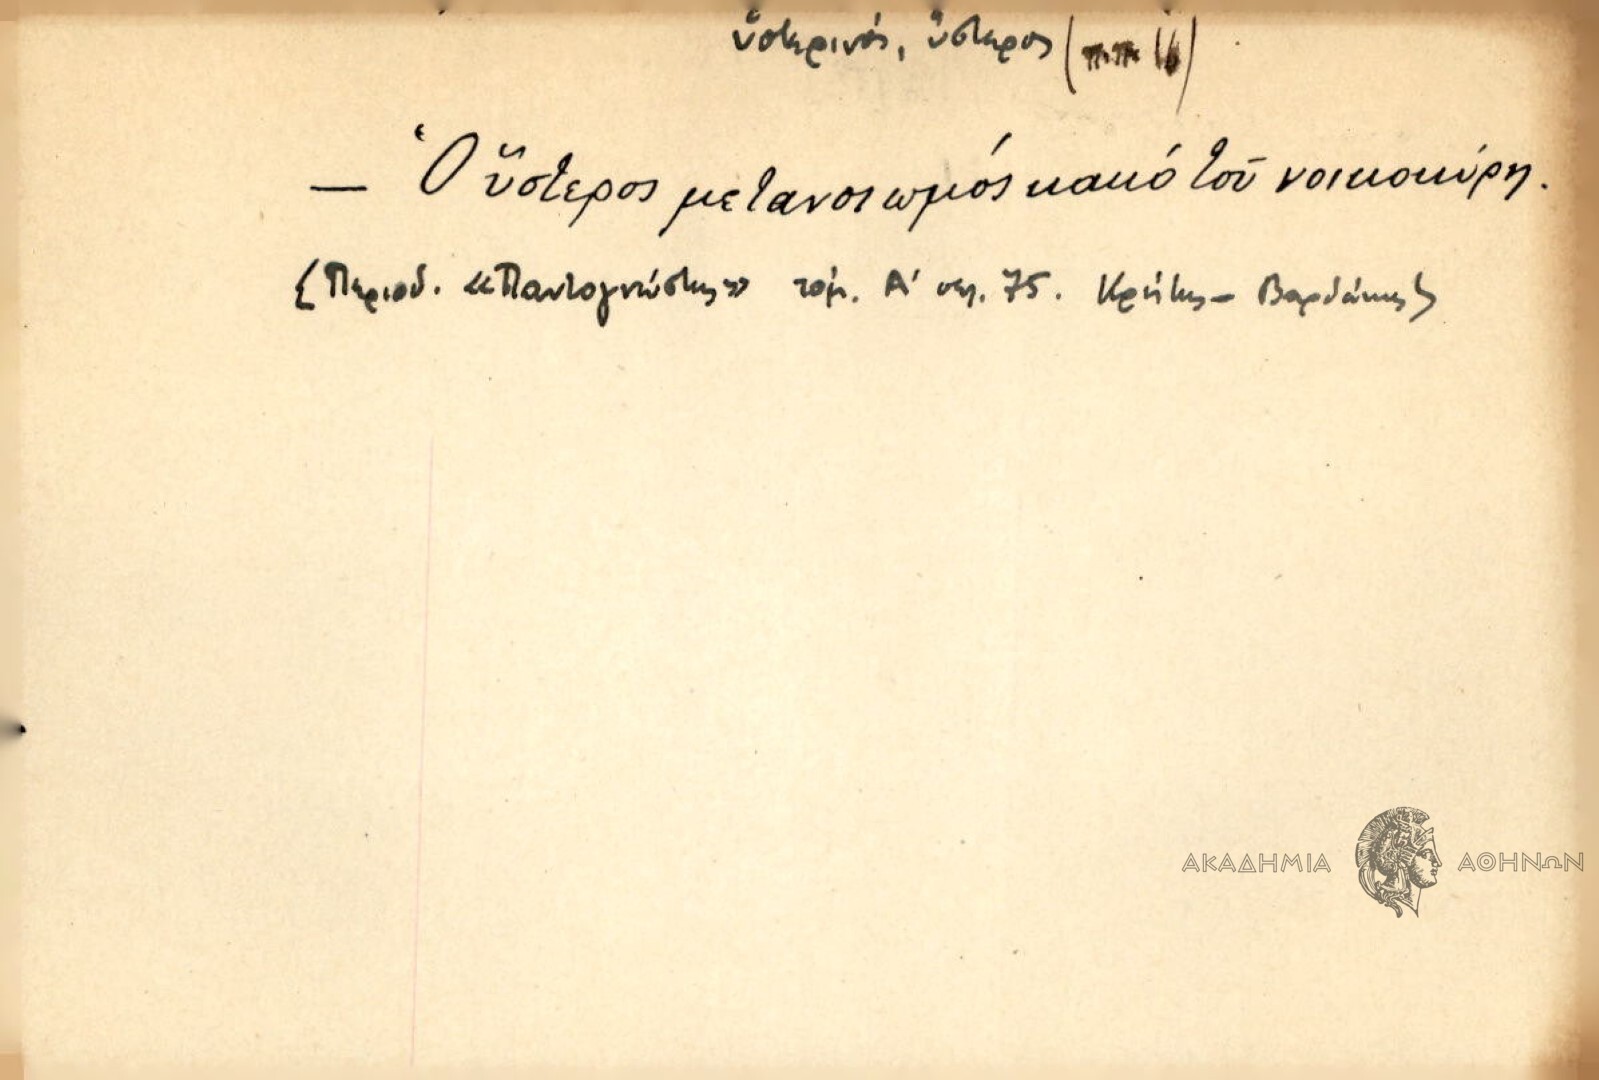 ὑστερινός, ὕστερος (π.π. 16)
— Ὁ ὕστερος μετανοιωμός κακό τοῦ νοικοκύρη.
{Περιοδ. «Παντογνώστης» τόμ. Α' σελ. 75. Κρήτης - Βαρδάκης}
ΑΚΑΔΗΜΙΑ ΑΘΗΝΩΝ